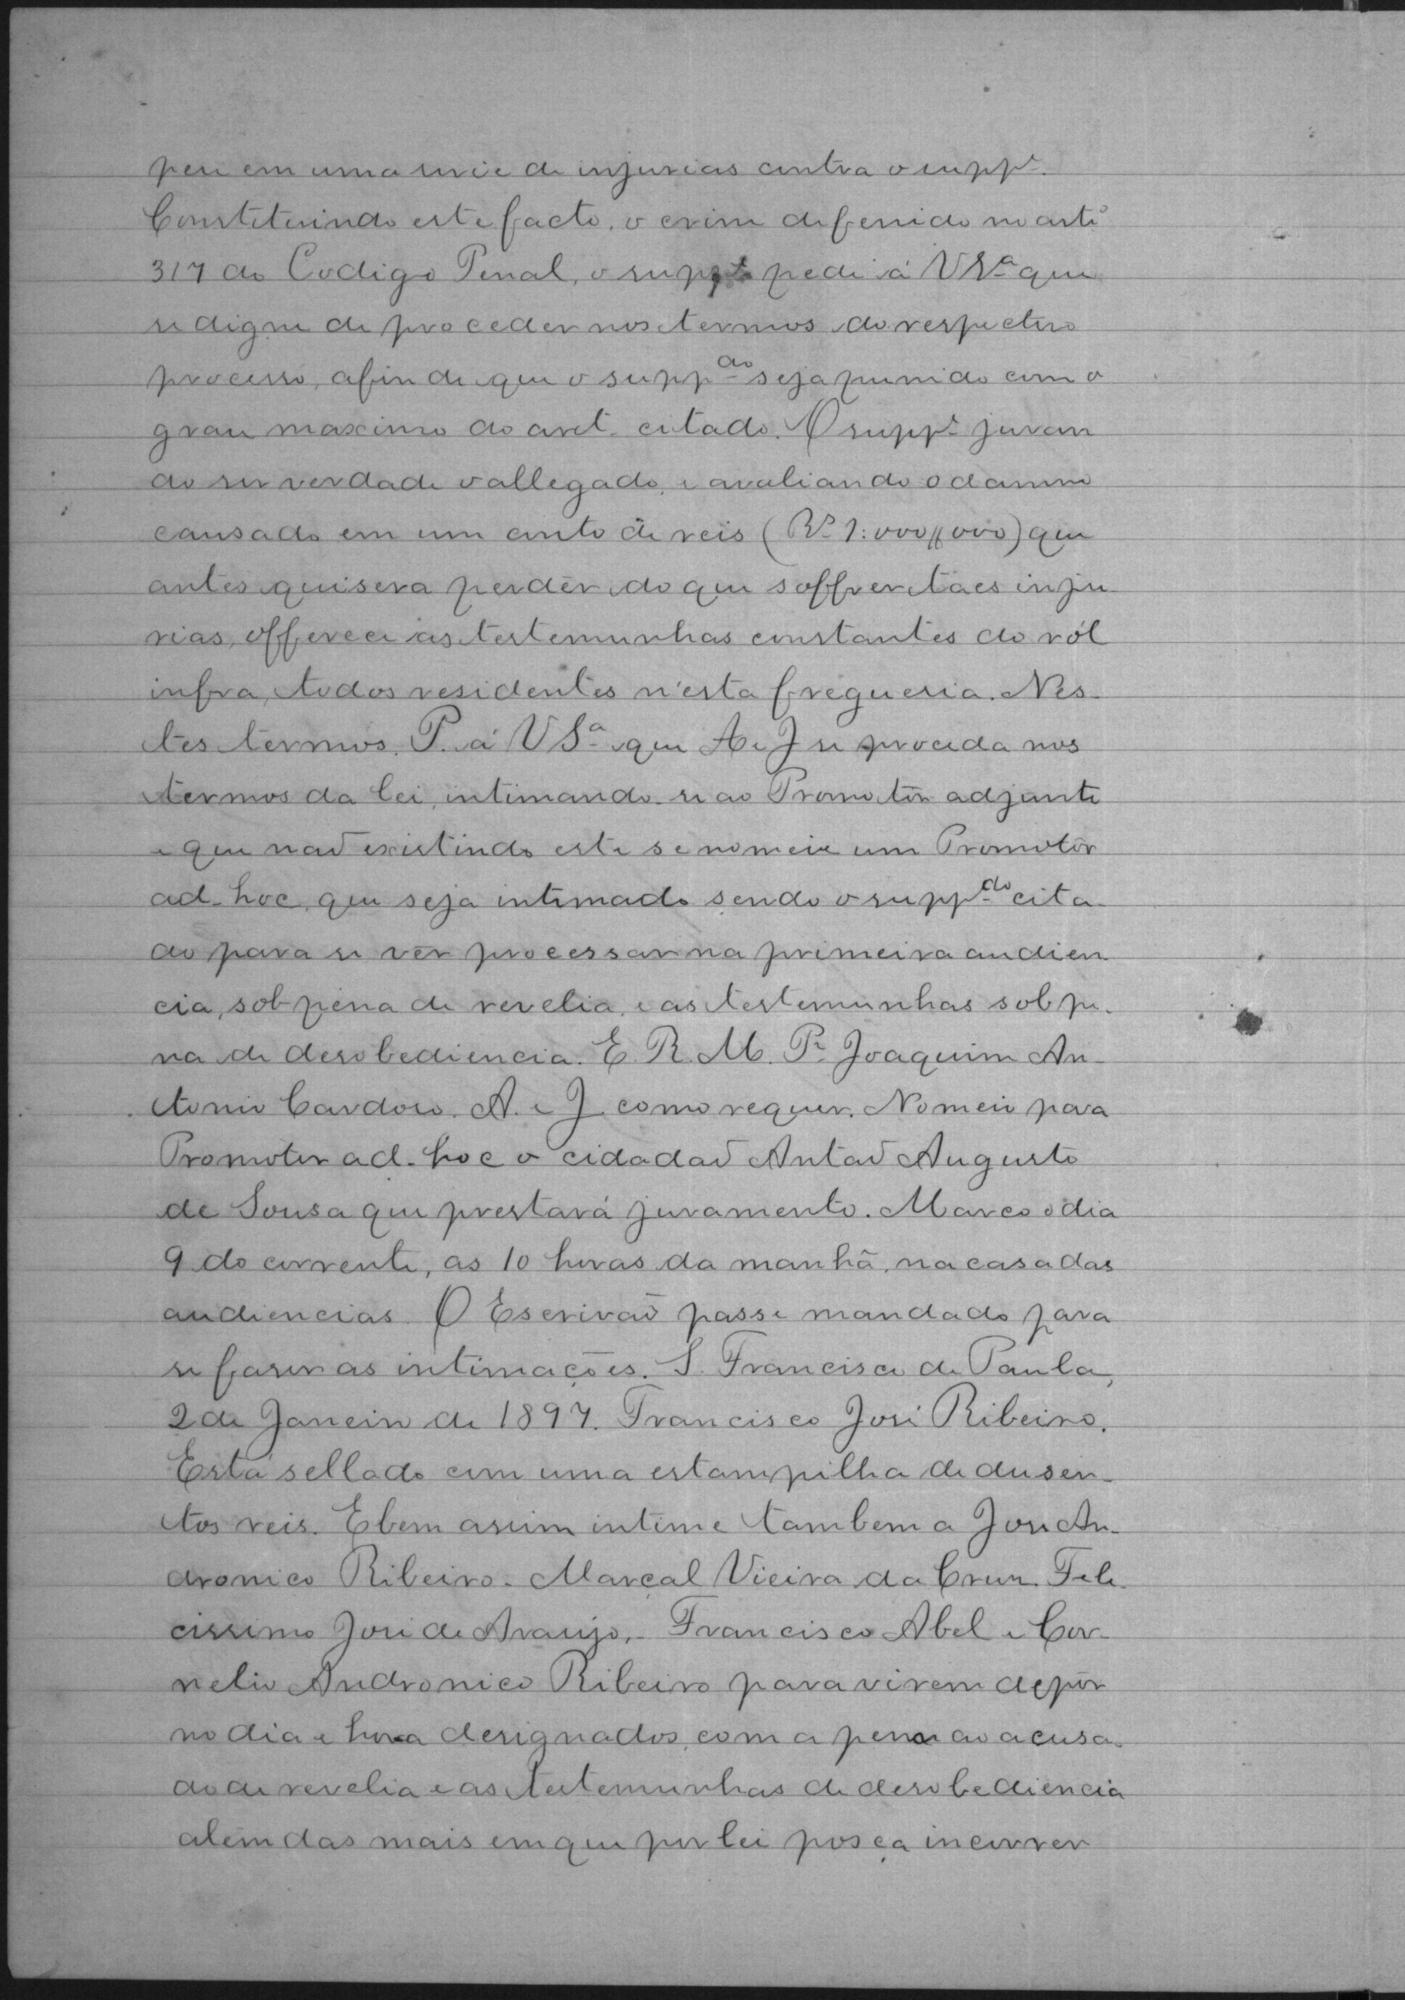 peu em uma serie de injurias contra o supp.e
Constituindo este facto, o crime defenido no arti.º
317 do Codigo Penal, o supp.te pede á V S.ª que
se digne de proceder nos termos do respectivo
processo, afin de que o supp.do seja punido com o
grau maximo do art. citado. O supp.e juran
do ser verdade o allegado, e avaliando o damno
causado em um conto de reis (R.s 1:000$000) que
antes quisera perder do que soffrer táes inju-
rias, offerece as testemunhas constantes do ról
infra, todos residentes n'esta freguesia. Nes-
tes termos. P. á V S.ª que A e J se proceda nos
termos da lei, intimando-se ao Promotôr adjunto
e que naõ existindo este se nomeie um Promotôr
ad-hoc, que seja intimado sendo o supp.do cita-
do para se vêr processar na primeira audien
cia, sob pena de revelia, e as testemunhas sob pe-
na de desobediencia. E. R. M. P.r Joaquim An-
tonio Cardoso. A. e J. como requer. Nomeio para
Promotor ad-hoc o cidadaõ Antaõ Augusto
de Sousa que prestará juramento. Marco o dia
9 do corrente, as 10 horas da manhã, na casa das
audiencias. O Escrivaõ passe mandado para
se faser as intimações. S. Francisco de Paula,
2 de Janeiro de 1897. Francisco José Ribeiro.
Está sellado com uma estampilha de dusen-
tos reis. E bem assim intime tambem a José An-
dronico Ribeiro. Marçal Vieira da Crus. Feli-
cissimo José de Araujo, - Francisco Abel e Cor-
nelio Andronico Ribeiro para virem depôr
no dia e hora designados, com a pena ao acusa-
do de revelia e as testemunhas de desobediencia
alem das mais em que por lei posça incorrer